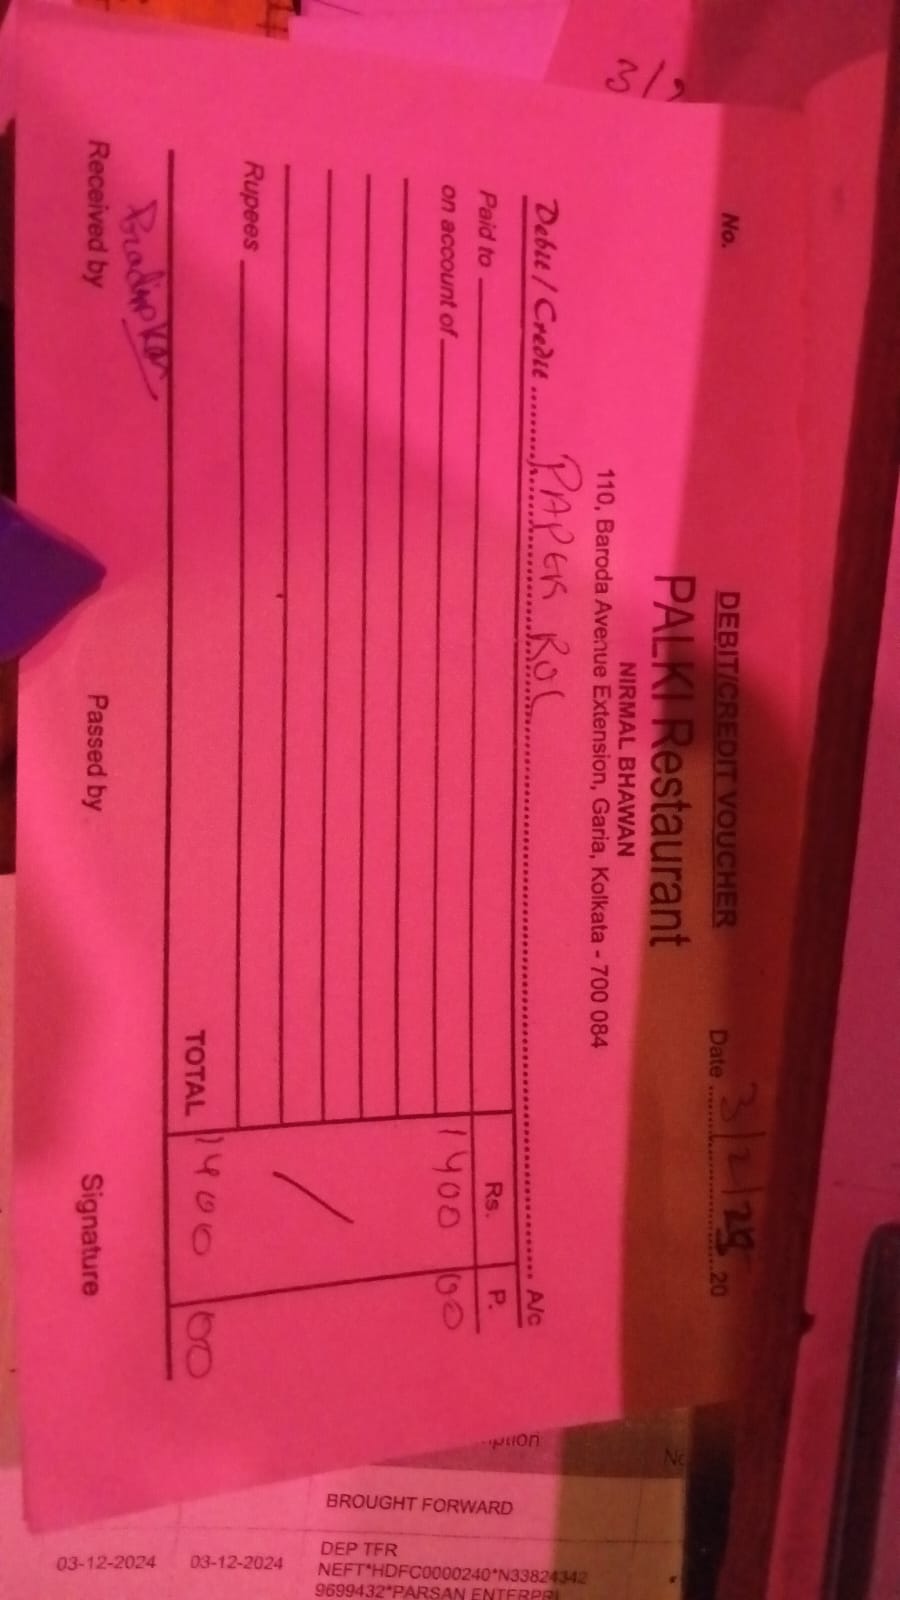 DEBIT/CREDIT VOUCHER
No.
Date 3/2/25 20
PALKI Restaurant
NIRMAL BHAWAN
110, Baroda Avenue Extension, Garia, Kolkata - 700 084
Debit / Credit PAPER ROL A/c
Paid to
Rs. P.
on account of 1400 00
Rupees
TOTAL 1400 00
Received by Passed by Signature
3/2
No
BROUGHT FORWARD
03-12-2024 03-12-2024 DEP TFR
NEFT*HDFC0000240*N33824342
9699432*PARSAN ENTERPRI